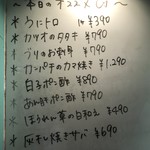 〜本日のオススメ〜
* うにトロ 1コ ¥390
* カツオのタタキ ¥790
* ブリのお刺身 ¥790
* カンパチのカマ焼き ¥1,290
* 白子ポン酢 ¥890
* あん肝ポン酢 ¥790
* ほうれん草の白和え ¥490
* 灰干し焼きサバ ¥690